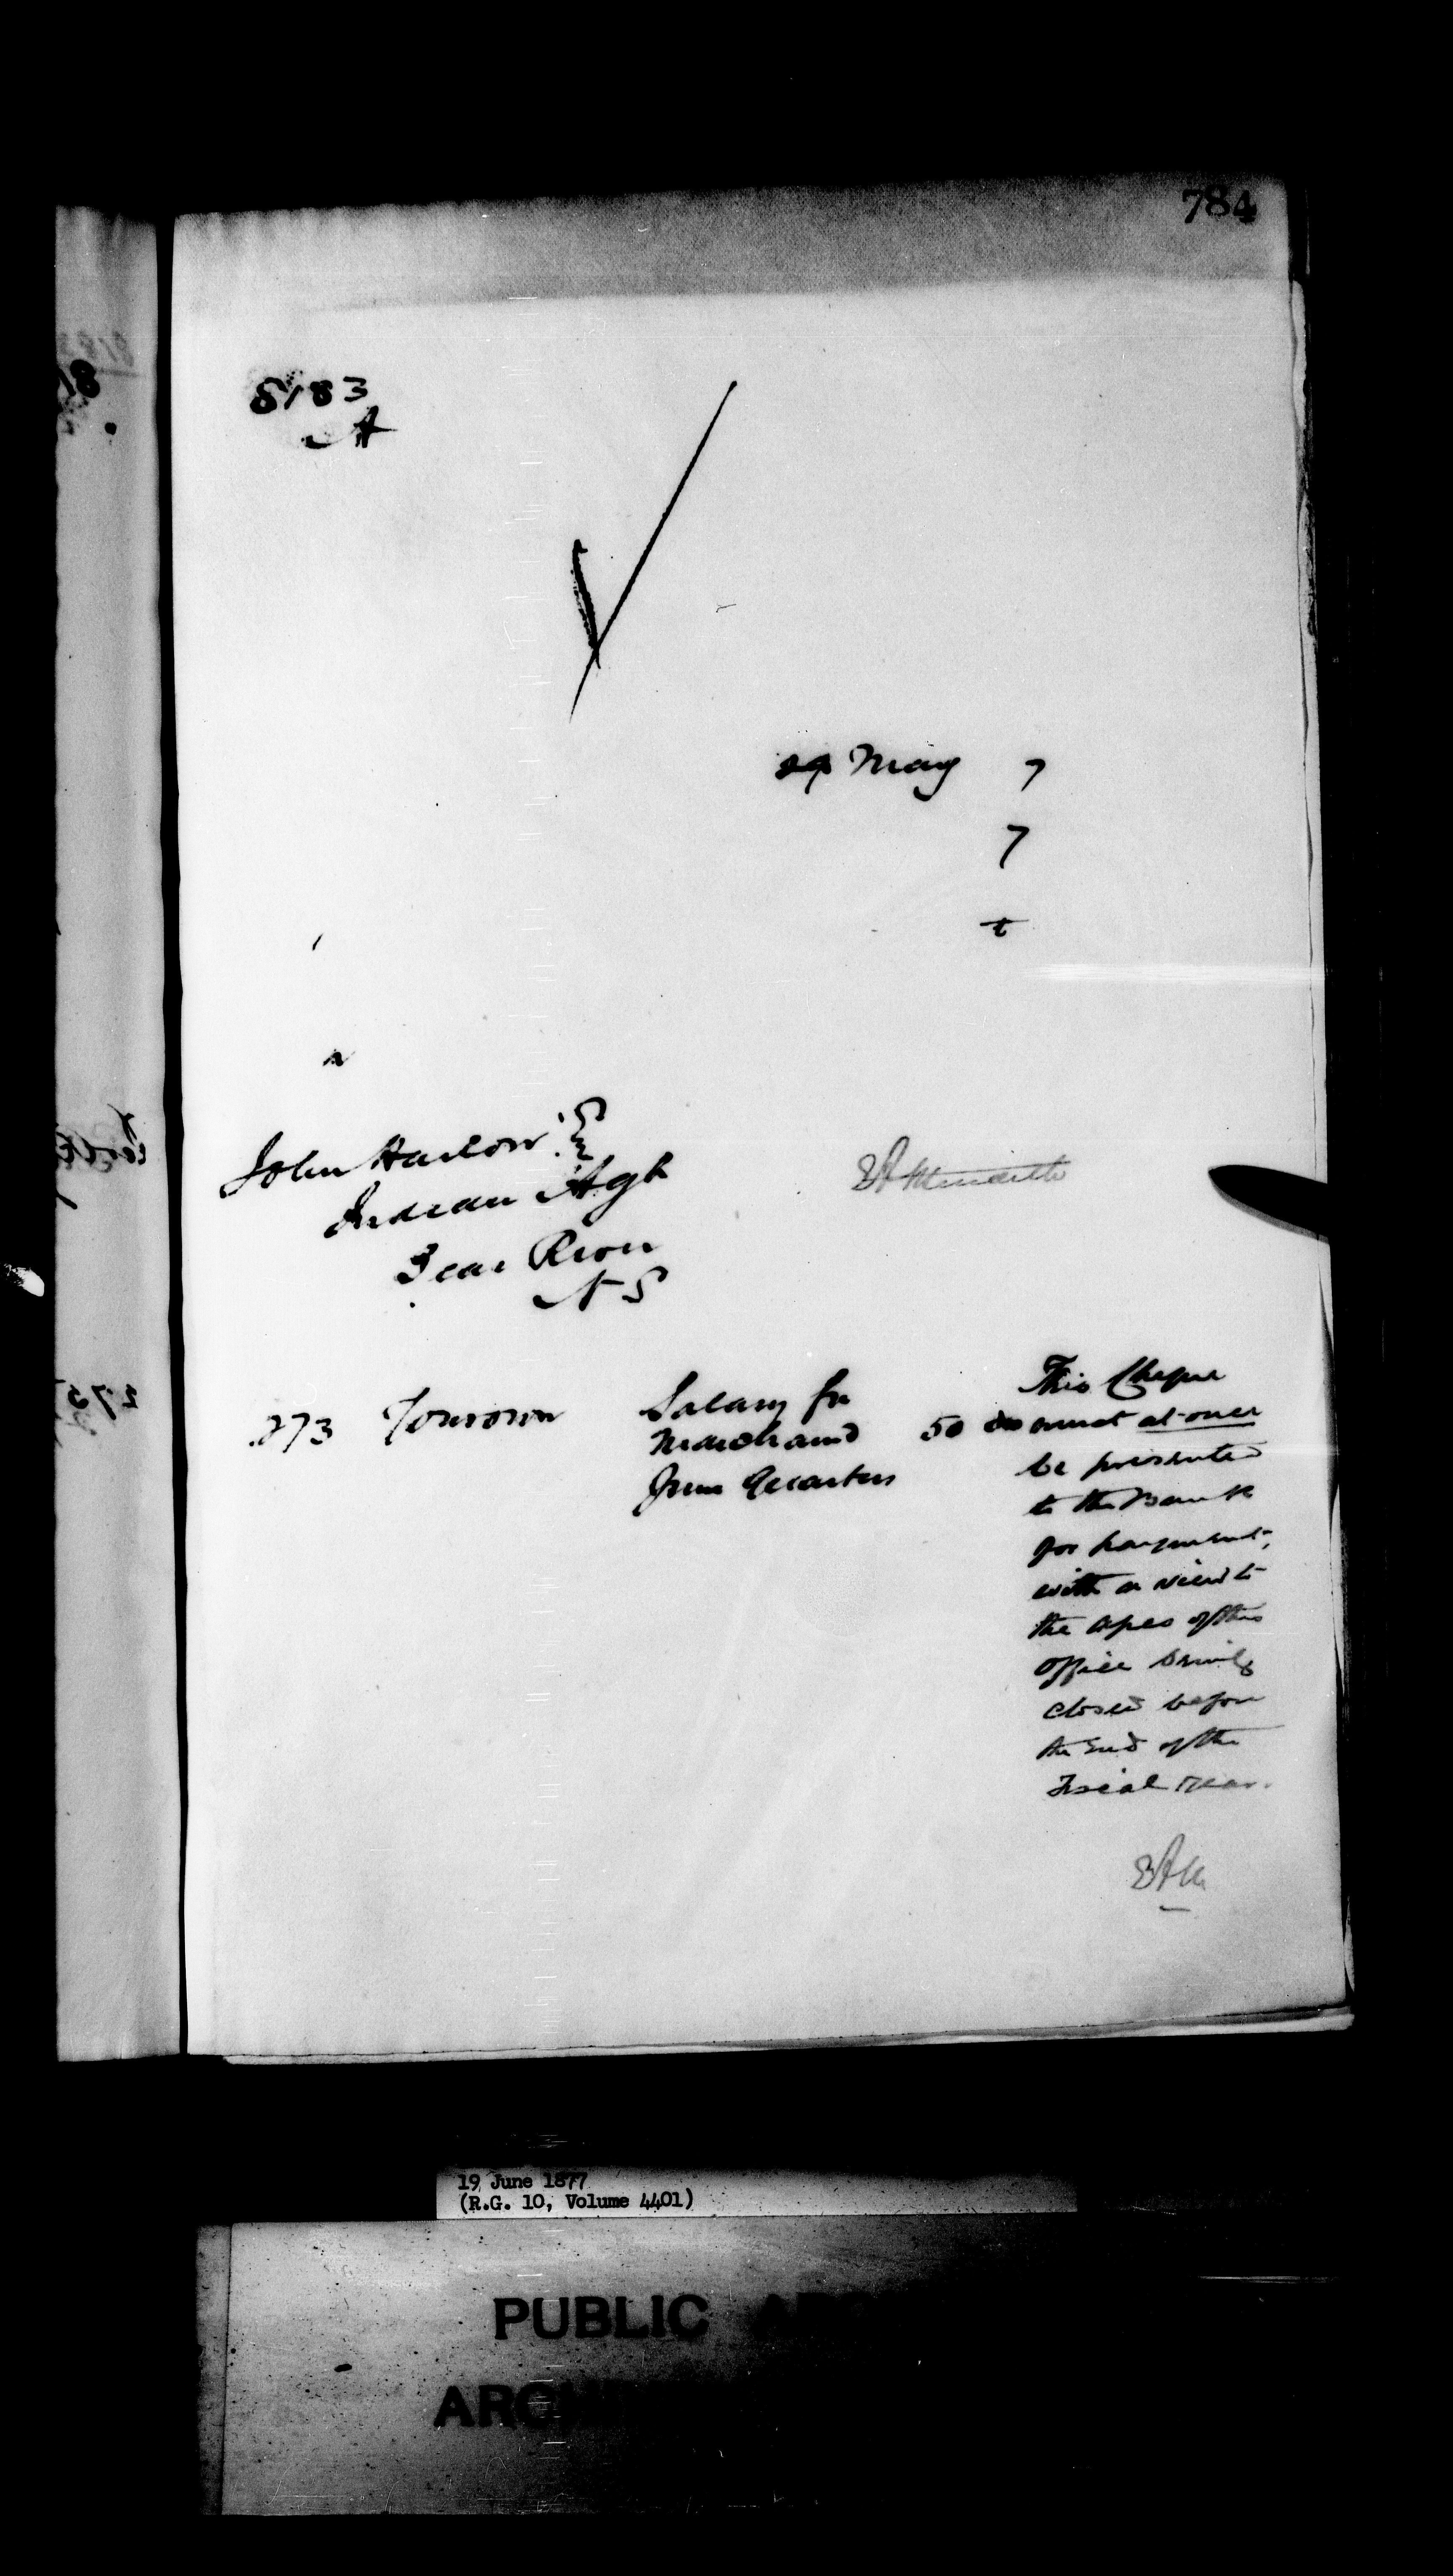 784
8183
A
29 May 7
7
t
John Harlow Esq
Indian Agt
Bear River
N S
EA Meredith
273 Yourown Salary for
March and 50 00
June Quarters
This Cheque
must at once
be presented
to the Bank
for payment,
with a view to
the a/cs of this
Office being
closed before
the End of the
Fiscal Year.
EAM
19 June 1877
(R.G. 10, Volume 4401)
PUBLIC